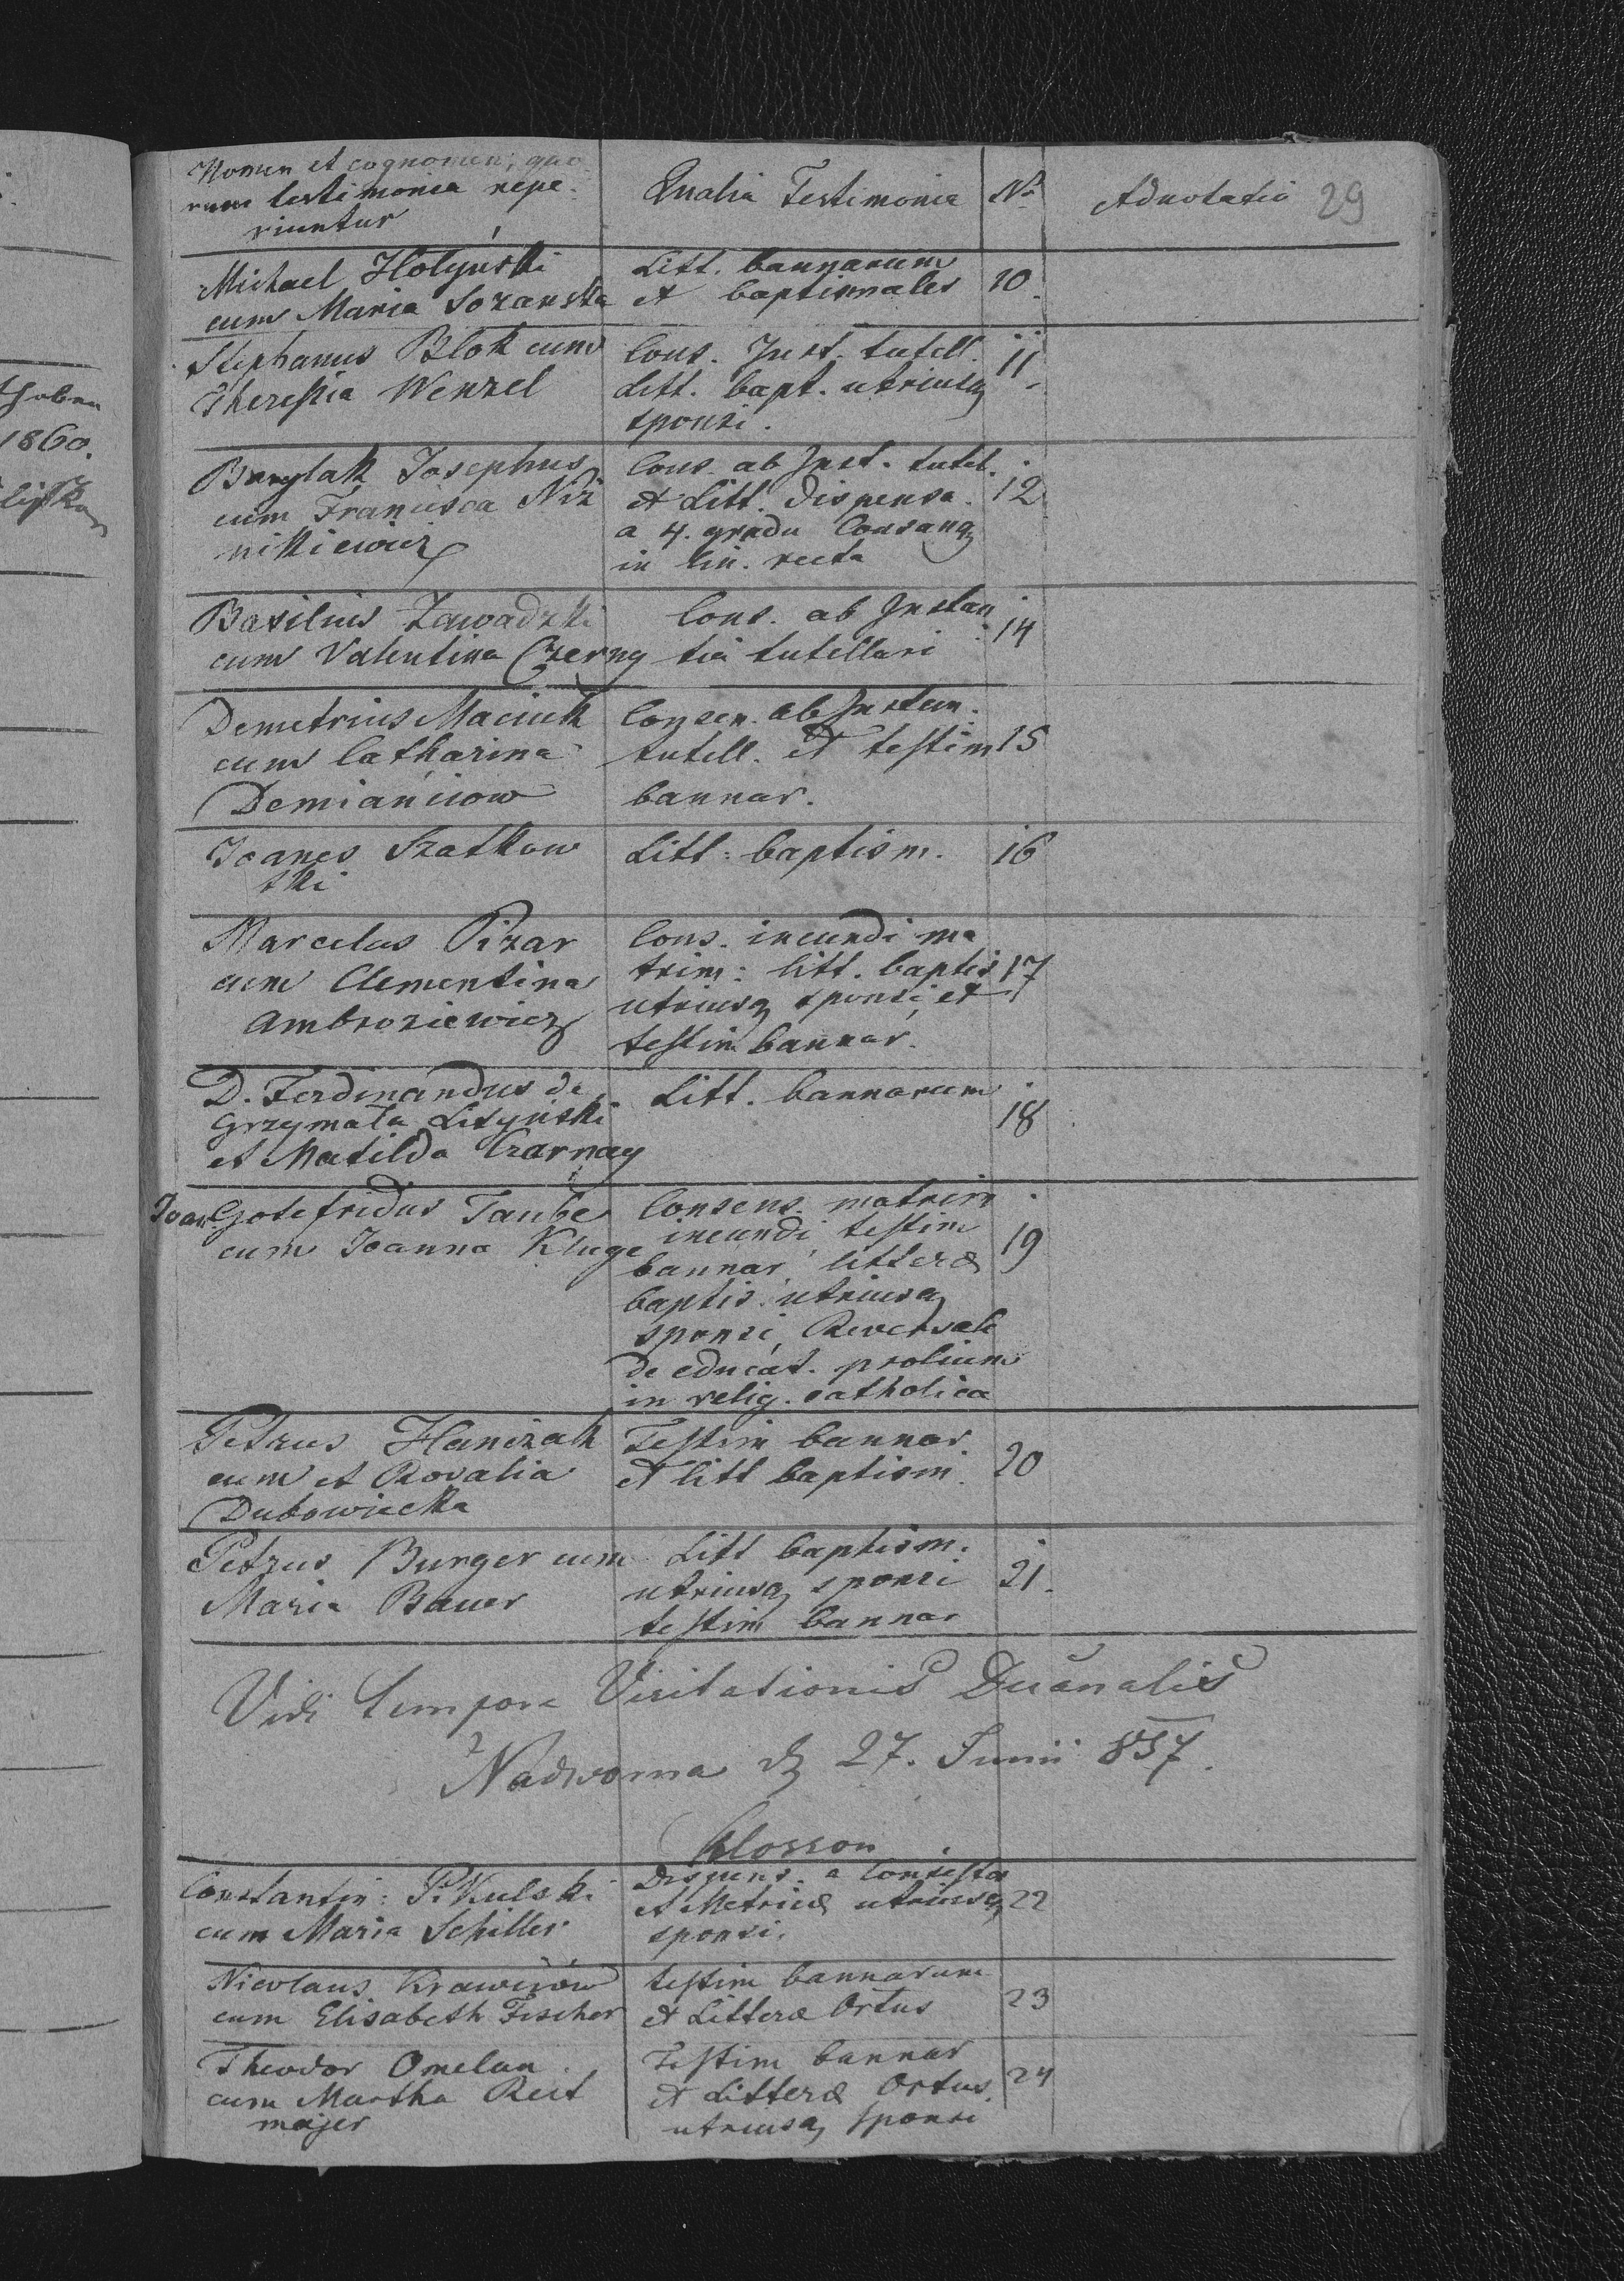 Nomen et cognomen, quo
rum testimonia repe
riuntur
Qualia Testimonia
Nr
Adnotatio
29
Michael Hołyński
cum Maria Sozanska
Litt. bannarum
et baptismales
10.
Stephanus Blok cum
Theressia Wenzel
Cons. Inst. tutell.
Litt. bapt. utriusq
sponsi.
11
Josephus
cum Francisca Niż
nikiewicz
Cons. ab Inst. tutel.
et Litt. dispensa.
a 4. gradu Consang
in lin. recta
12
Basilius Zawadzki
cum Valentina Czerny
Cons. ab Instan
tia tutellari
14
Demetrius Maciuk
cum Catharina
Demiańców
Consen. ab Instan.
tutell. et testim
bannar.
15
Joanes Szatkow
ski
Litt: baptism.
16
Marcelus Pizar
cum Clementina
Ambroziewicz
Cons. ineundi ma
trim: litt. baptis
utriusq sponsi et
testim bannar.
17
D. Ferdinandus de
Grzymała Lisyński
et Matilda Czarnay
Litt. bannarum
18
Joan. Gotefridus Taube
cum Joanna Kluge
Consens. matrim
ineundi testim
bannar, litteræ
baptis. utriusq
sponsi, Reversale
de educat. prolium
in relig. catholica
19
Petrus Hanczak
cum et Rosalia
Dubowiecka
Testim bannar.
et litt baptism.
20
Petrus Burger cum
Maria Bauer
Litt baptism.
utriusq sponsi
testim bannar
21.
Vidi tempore Visitationis Decanalis
Nadworna d 27. Junii 857.
Constantin: Pikulski
cum Maria Schiller
Dispens. a Consistor
et Metricæ utriusq
sponsi.
22
Nicolaus Krawców
cum Elisabeth Fischer
testim bannarum
et Litteræ Ortus
23
Theodor Omelan
cum Martha Reit
majer
Testim bannar
et Litteræ Ortus
utriusq sponsi
24
1860.